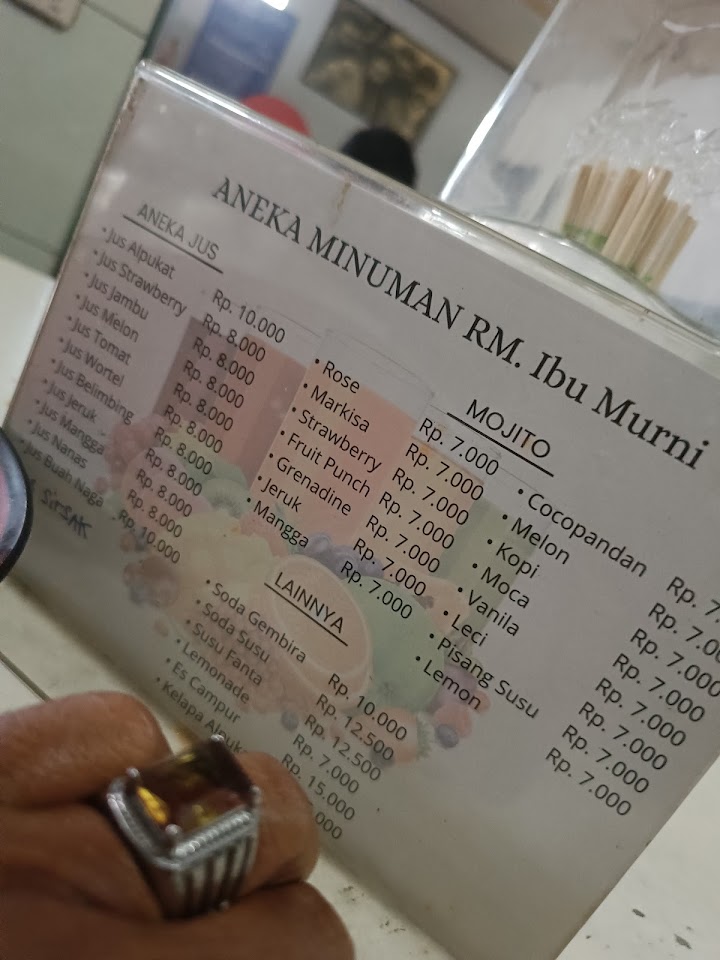 ANEKA MINUMAN RM. Ibu Murni
ANEKA JUS
• Jus Alpukat Rp. 10.000
• Jus Strawberry Rp. 8.000
• Jus Jambu Rp. 8.000
• Jus Melon Rp. 8.000
• Jus Tomat Rp. 8.000
• Jus Wortel Rp. 8.000
• Jus Belimbing Rp. 8.000
• Jus Jeruk Rp. 8.000
• Jus Mangga Rp. 8.000
• Jus Nanas Rp. 8.000
• Jus Buah Naga Rp. 10.000
SIRSAK
MOJITO
• Rose Rp. 7.000
• Markisa Rp. 7.000
• Strawberry Rp. 7.000
• Fruit Punch Rp. 7.000
• Grenadine Rp. 7.000
• Jeruk Rp. 7.000
• Mangga Rp. 7.000
• Cocopandan Rp. 7.
• Melon Rp. 7.00
• Kopi Rp. 7.000
• Moca Rp. 7.000
• Vanila Rp. 7.000
• Leci Rp. 7.000
• Pisang Susu Rp. 7.000
• Lemon
LAINNYA
• Soda Gembira Rp. 10.000
• Soda Susu Rp. 12.500
• Susu Fanta Rp. 12.500
• Lemonade Rp. 7.000
• Es Campur Rp. 15.000
• Kelapa .000